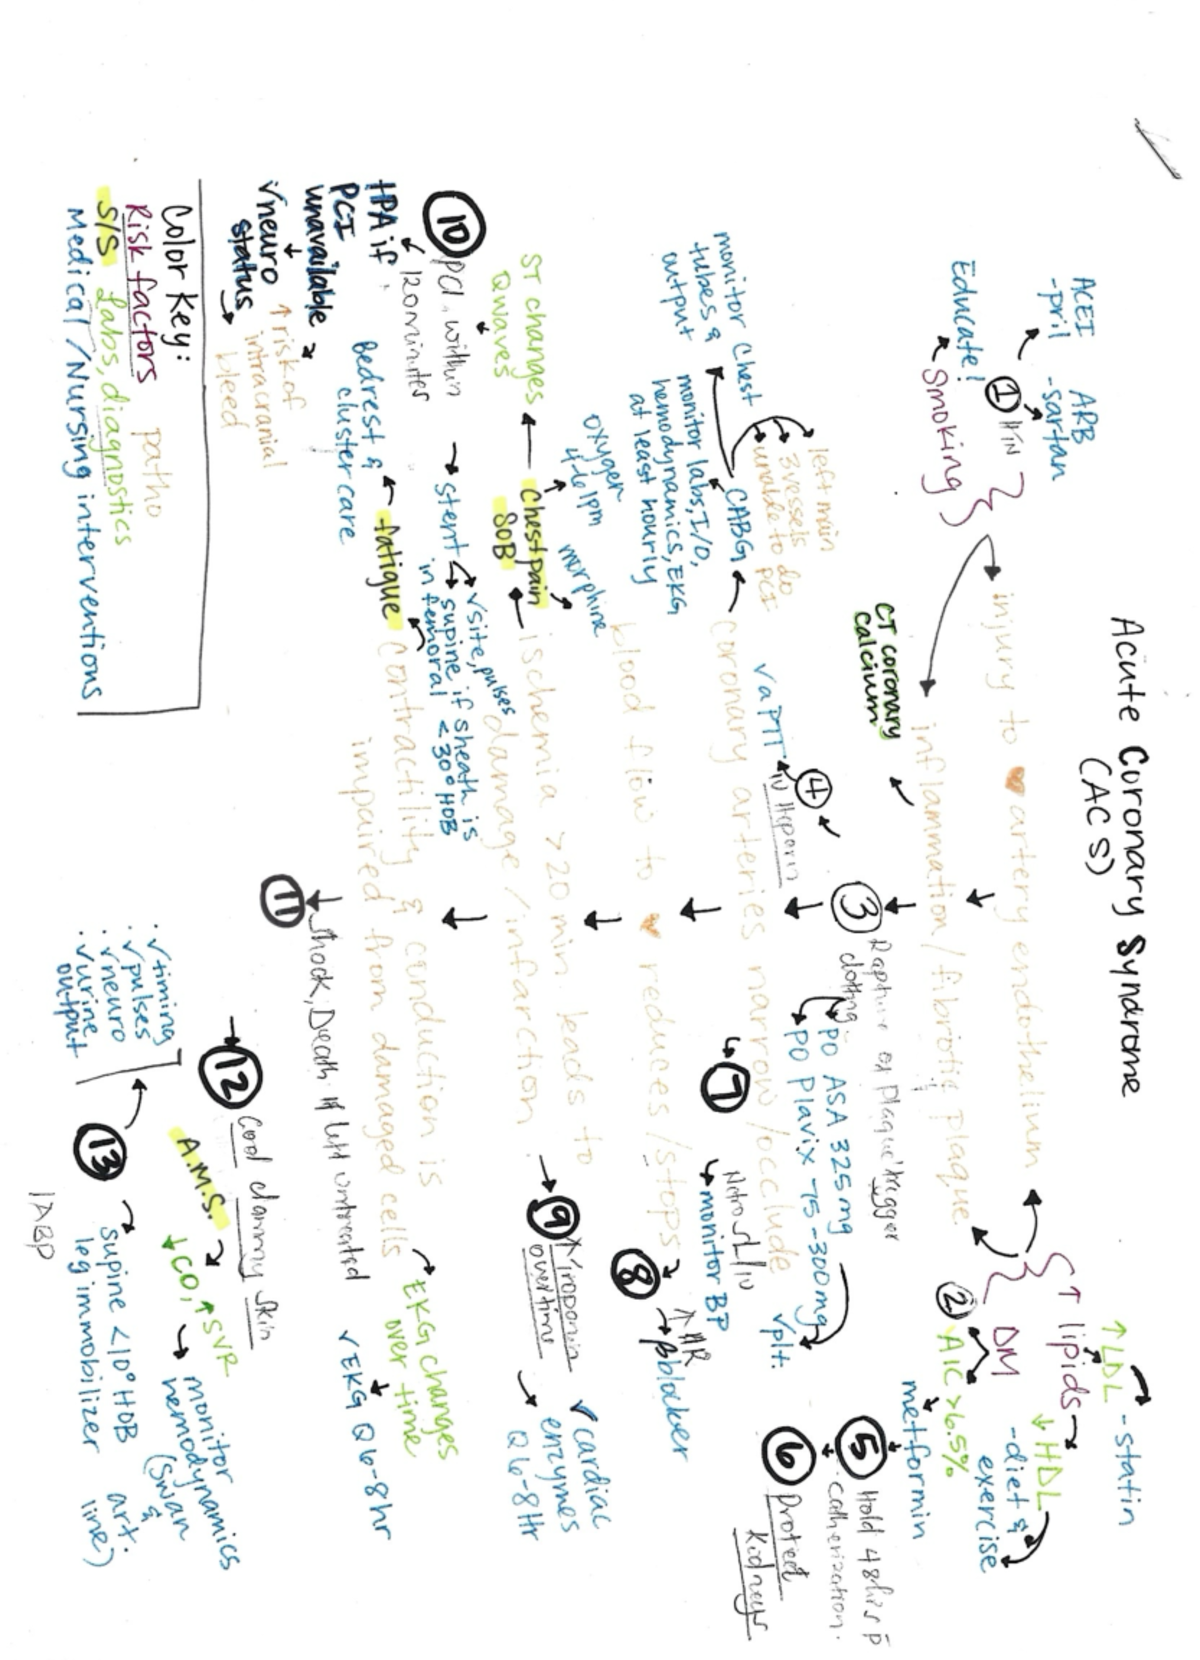 Acute Coronary Syndrome
(ACS)
ACEI
-pril
ARB
-sartan
① HTN
Educate!
Smoking
injury to artery endothelium
↑ lipids
↑ LDL
-statin
↓ HDL
-diet &
exercise
DM
② A1C >6.5%
metformin
⑤ Hold 48hrs p̄
catherization.
⑥ Protect
kidneys
inflammation/fibrotic plaque
CT coronary
calcium
③ Rapture of plaque trigger
clotting
PO ASA 325mg
PO Plavix 75-300mg
√plt.
④ IV Heparin
√aPTT
coronary arteries narrow/occlude
CABG
left main
3 vessels
unable to do
PCI
monitor chest
tubes &
output
monitor labs, I/O,
hemodynamics, EKG
at least hourly
⑦ Nitro SL/IV
monitor BP
blood flow to reduces/stops
⑧ ↑ HR
βblocker
ischemia >20min. leads to
damage/infarction
chest pain
SOB
oxygen
4-6 lpm
morphine
ST changes
Q waves
⑨ ↑Troponin
overtime
√ cardiac
enzymes
Q6-8Hr
⑩ PCI within
120 minutes
stent
√site, pulses
supine if sheath is
in femoral <30° HOB
tPA if
PCI
unavailable
√neuro
status
↑ risk of
intracranial
bleed
contractility & conduction is
impaired from damaged cells
fatigue
Bedrest &
cluster care
EKG changes
over time
√ EKG Q6-8hr
⑪ Shock, Death if left untreated
⑫ Cool clammy skin
A.M.S.
↓CO, ↑SVR
monitor
hemodynamics
(swan &
art.
line)
⑬ supine <10° HOB
leg immobilizer
IABP
· √timing
· √pulses
· √neuro
· √urine
output
Color Key:
Risk factors patho
S/S Labs, diagnostics
Medical/Nursing interventions